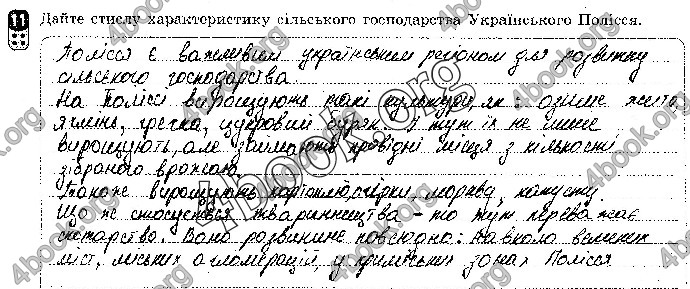 11 Дайте стислу характеристику сільського господарства Українського Полісся.
Полісся є важливим українським регіоном для розвитку
сільського господарства.
На Поліссі вирощують такі культури, як: озиме жито,
ячмінь, гречка, цукровий буряк. І тут їх не лише
вирощують, але займають провідні місця з кількості
зібраного врожаю.
Також вирощують картоплю, огірки, морква, капусту.
Що ж стосується тваринництва - то тут переважає
скотарство. Воно розвинине повсюдно: навколо великих
міст, міських агломерацій, у приміських зонах Полісся
4book.org